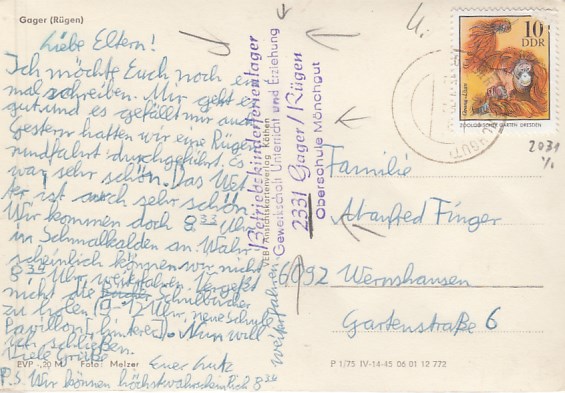 Gager (Rügen)
Liebe Eltern!
Ich möchte Euch noch ein
mal schreiben. Mir geht es
gut und es gefällt mir auch
Gestern hatten wir eine Rügen
rundfahrt durchgeführt. Es
war sehr schön. Das Wet
ter ist auch sehr schön.
Wir kommen doch 8 33 Uhr
in Schmalkalden an. Wahr
scheinlich können wir nicht
8 34 Uhr weiterfahren. Vergeßt
nicht die Schulbücher
zu holen 10-12 Uhr, neue Schule
Pavillon (hinterer). Nun will
ich schließen.
Viele Grüße
Euer Lutz
P.S. Wir können höchstwahrscheinlich 8 34
weiterfahren
EVP -,20 M Foto: Melzer
VEB Ansichtskartenverlag Köthen
Betriebskinderferienlager
Gewerkschaft Unterricht und Erziehung
2331 Gager/Rügen
Oberschule Mönchgut
10
DDR
ZOOLOGISCHER GARTEN DRESDEN
2031
Familie
Manfred Finger
6092 Wernshausen
Gartenstraße 6
P 1/75 IV-14-45 06 01 12 772